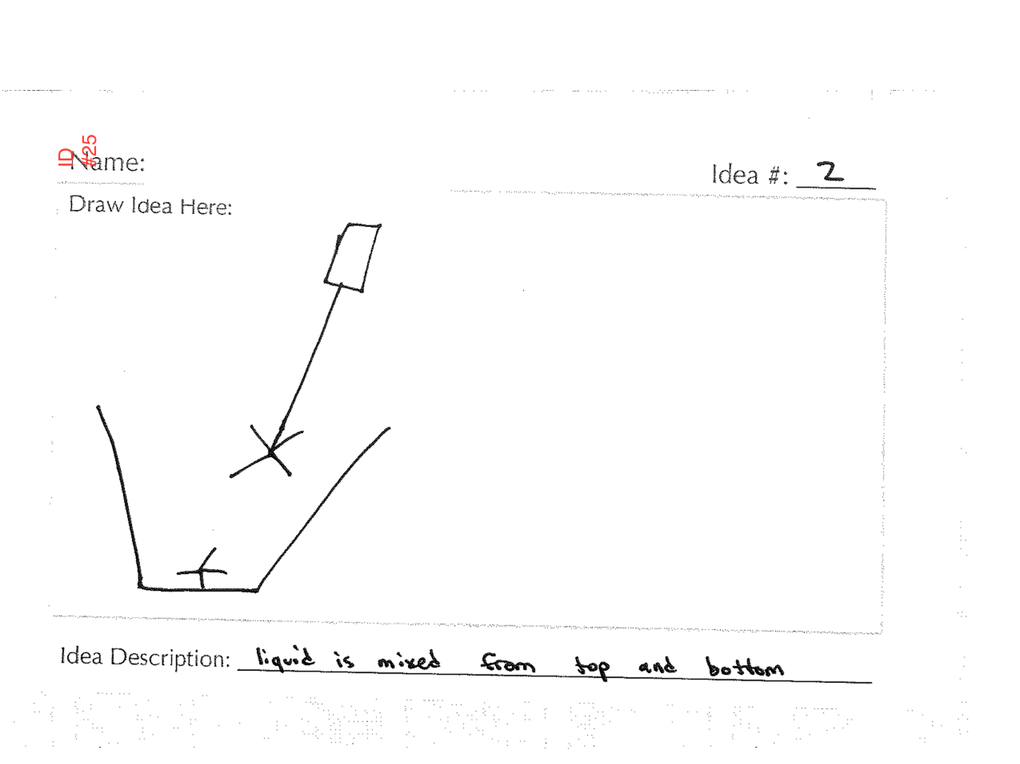 ID
#25
Name:
Idea #: 2
Draw Idea Here:
Idea Description: liquid is mixed from top and bottom